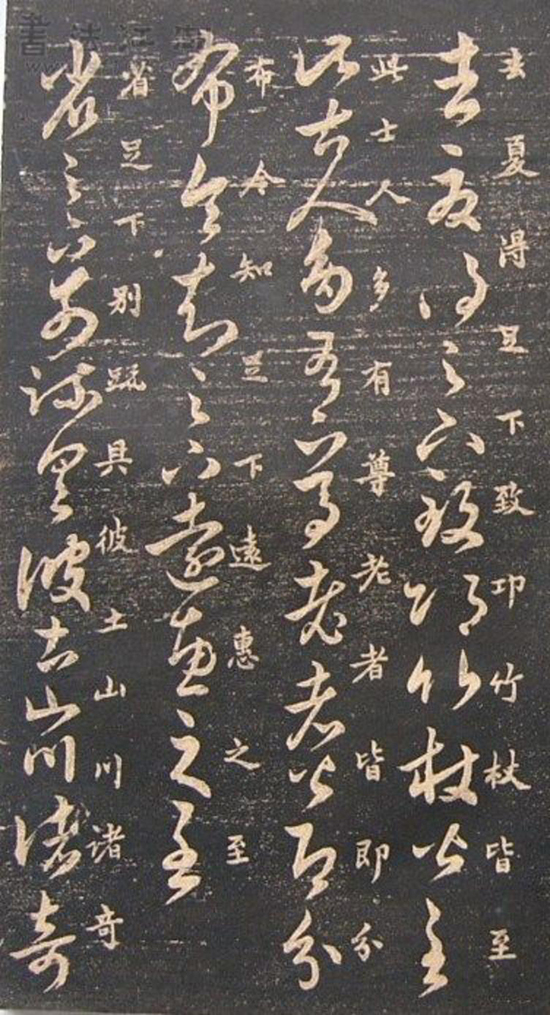 去夏得足下致邛竹杖皆至
去夏得足下致邛竹杖皆至
此士人多有尊老者皆即分
此士人多有尊老者皆即分
布令知足下遠惠之至
布令知足下遠惠之至
省足下别疏具彼土山川诸奇
省足下别疏具彼土山川诸奇